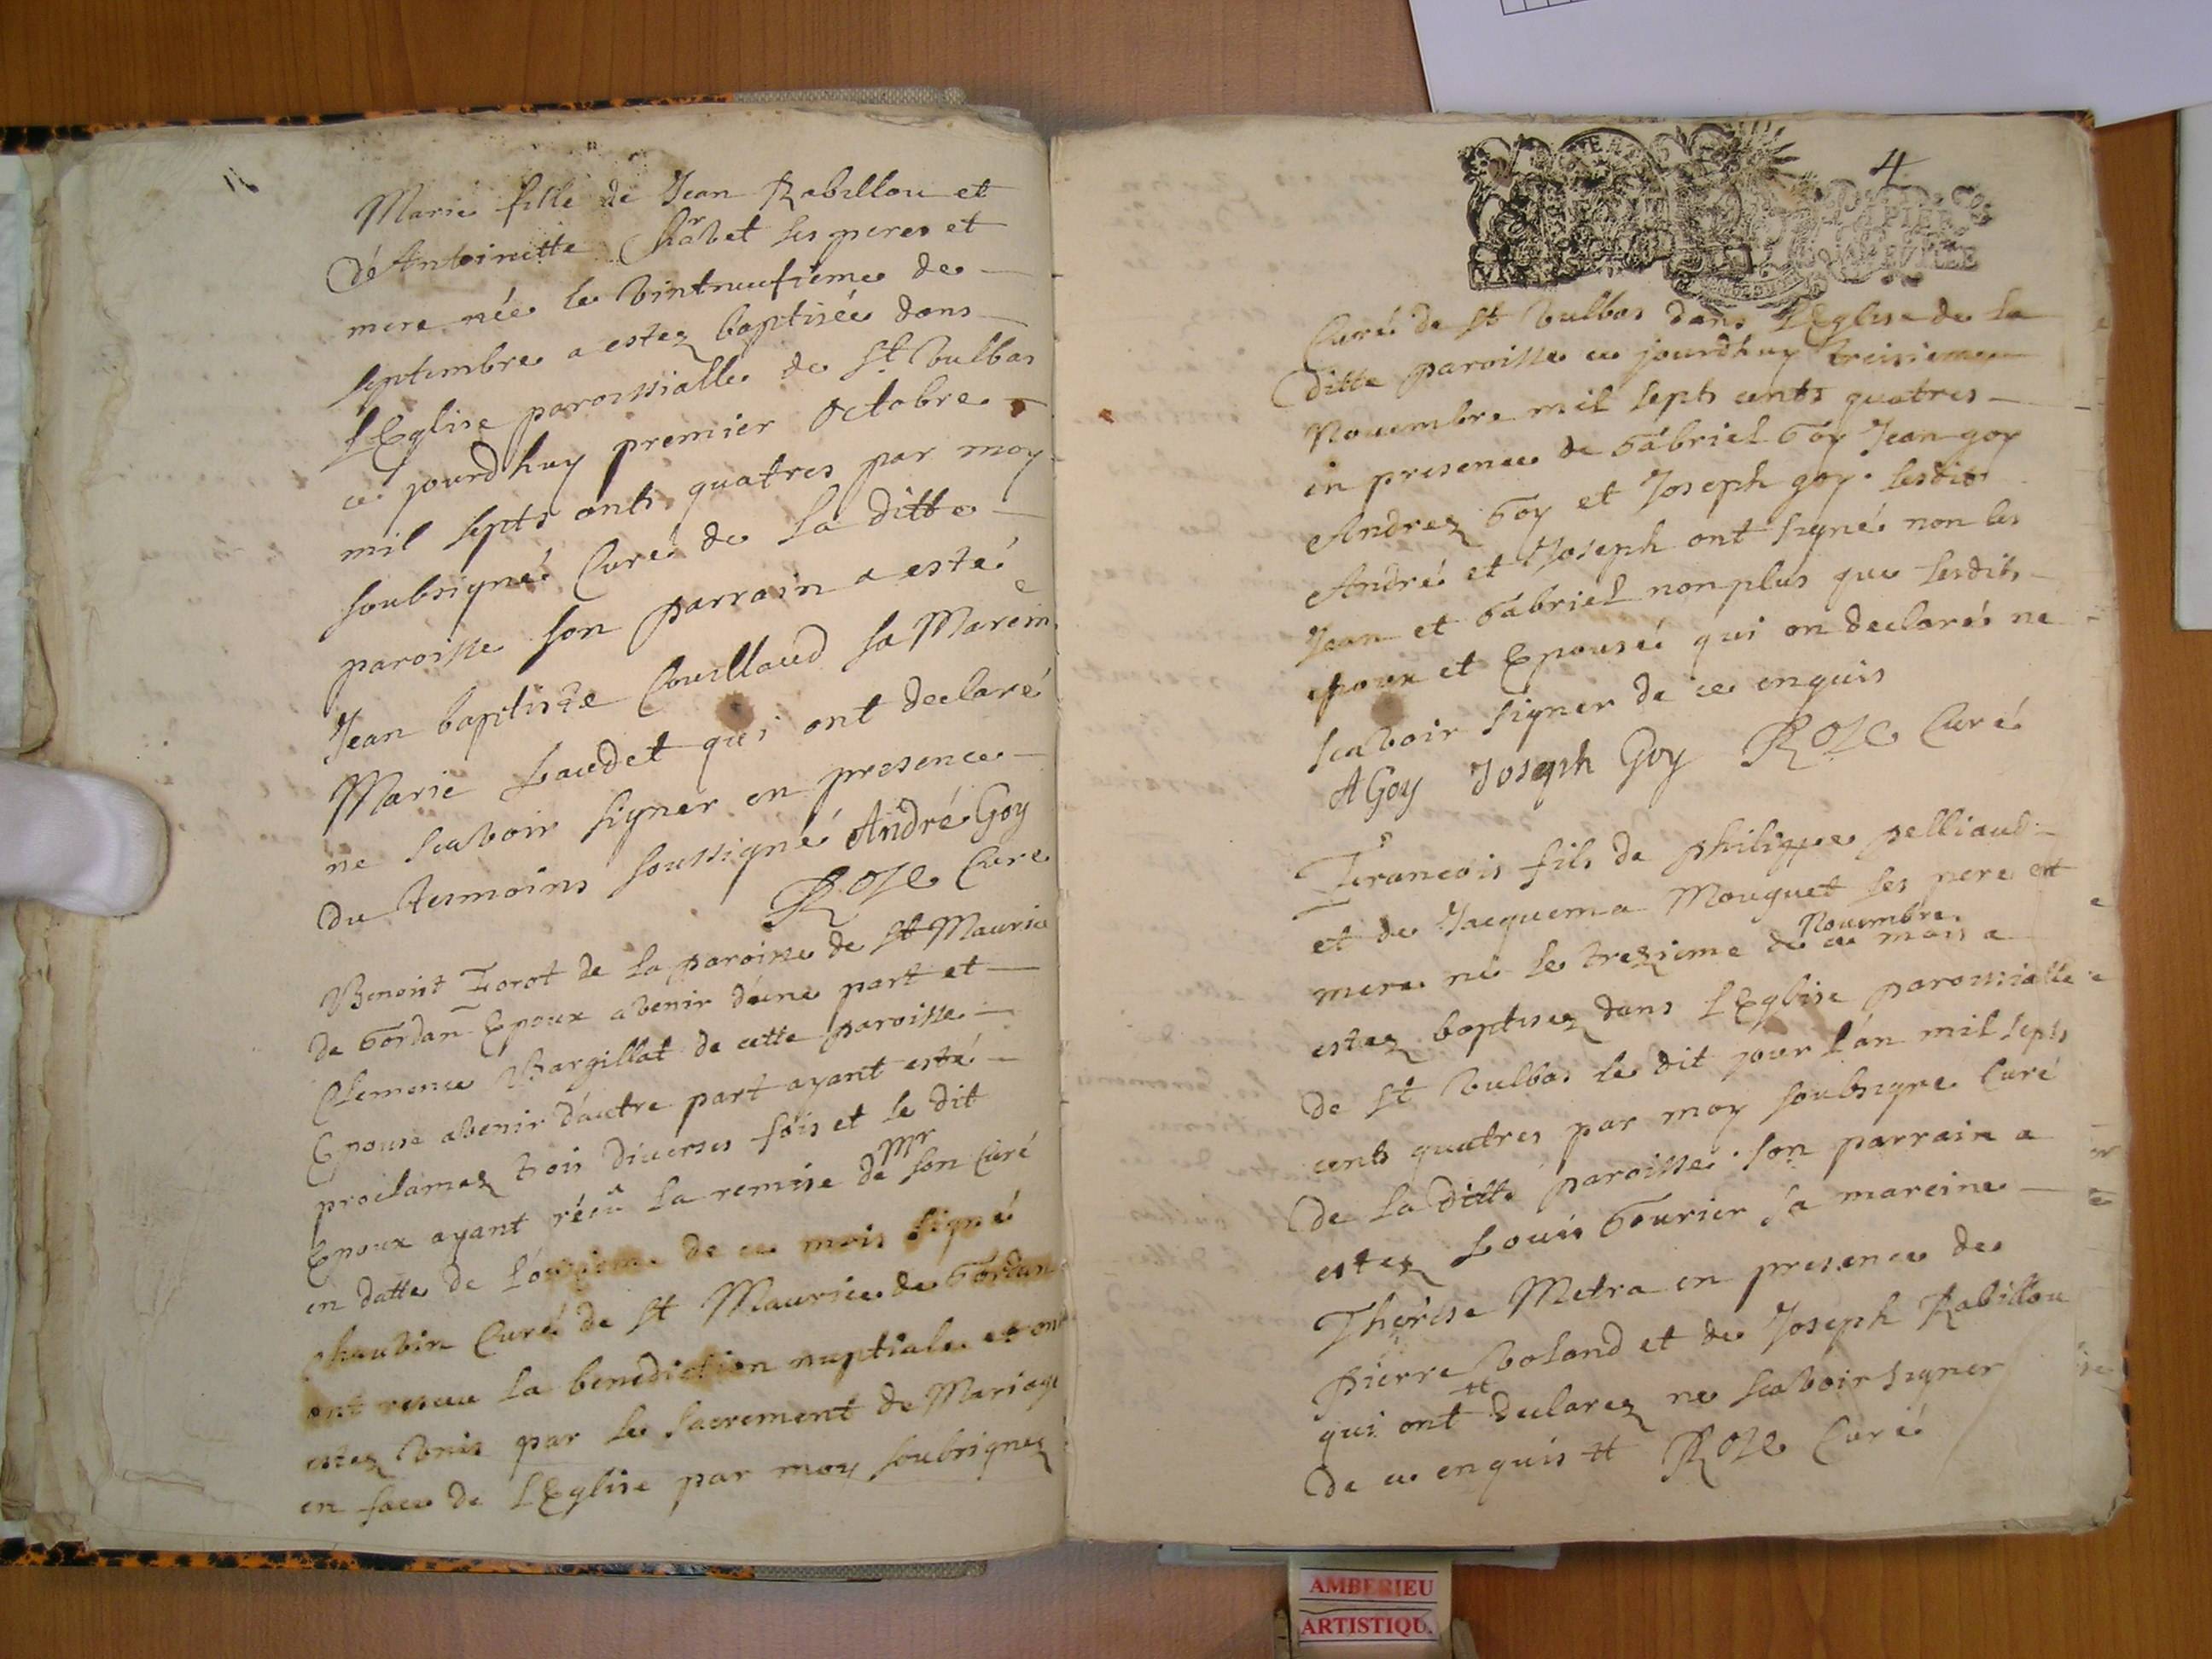 Marie fille de Jean Rabillou et
d'Antoinette Charvet ses peres et
mere née le vintneufieme de
septembre a estez baptisée dans
l'Eglise paroissialle de St Vulbas
ce jourd'huy premier Octobre
mil septs cents quatres par moy
soubsigné Curé de la ditte
paroisse son parrain a esté
Jean baptiste Couillaud sa Mareine
Marie Laudet qui ont declaré
ne scavoir signer en presence
du tesmoins soussigné André Goy
Roze Curé
Benoist Forot de la paroisse de St Maurice
de Gordan Epoux avenir d'une part et
Clemence Bargillat de cette paroisse
Epouse avenir d'autre part ayant esté
proclamez trois diverses fois et le dit
Epoux ayant réçû la remise de Mr son Curé
en datte de l'onzieme de ce mois signé
Chauvin Curé de St Maurice de Gordan
ont receu la benediction nuptiale et ont
estez Unis par le sacrement de Mariage
en face de l'Eglise par moy soubsignez
4
PAPIER
Curé de St Vulbas dans l'Eglise de la
ditte paroisse ce jourd'huy treisieme
Novembre mil septs cents quatres
in presence de Gabriel Goy Jean goy
Andrez Goy et Joseph goy. lesdits
André et Joseph ont signé non les
Jean et Gabriel non plus que lesdits
epoux et Epousé qui on declaré ne
scavoir signer de ce enquis
AGoy Joseph Goy Roze Curé
Francois fils de philippe pelliaud
et de Jacquema Mouguet ses pere et
mere né le trezieme de ce mois Novembre a
estez baptisez dans l'Eglise paroissialle
de St Vulbas le dit jour l'an mil septs
cents quatres par moy soubsigné Curé
de la ditte paroisse son parrain a
estez Louis Gourier sa mareine
Therese Metra en presence de
pierre Voland et de Joseph Rabillou
qui ont declarez ne scavoir signer
de ce enquis # Roze Curé
AMBERIEU
ARTISTIQU